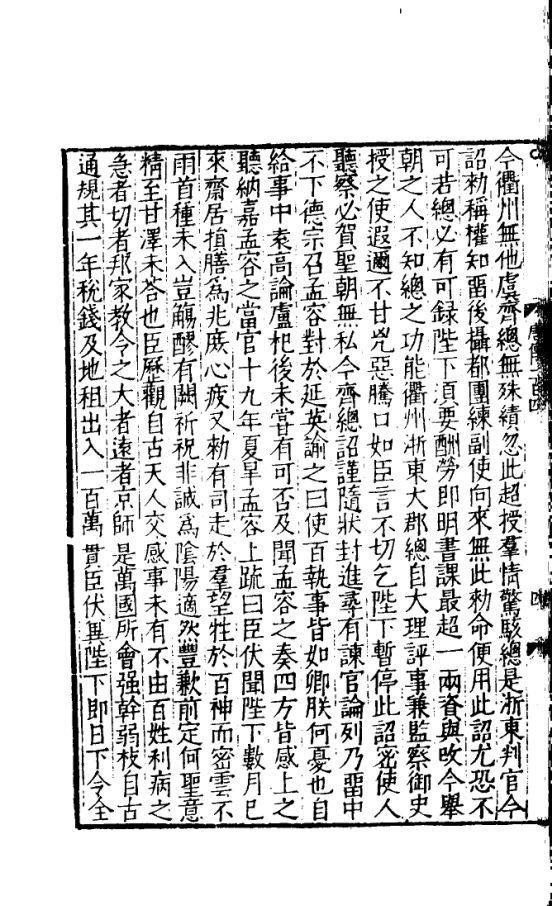 今衢州無他虞齊總無殊績忽此超授羣情驚駭總是浙東判官今
詔勑稱權知畱後攝都團練副使向來無此勑命便用此詔尤恐不
可若總必有可録陛下須要酬勞即明書課最超一兩資與改今舉
朝之人不知總之功能衢州浙東大郡總自大理評事兼監察御史
授之使遐邇不甘兇惡騰口如臣言不切乞陛下暫停此詔密使人
聽察必賀聖朝無私今齊總詔謹隨狀封進尋有諫官論列乃畱中
不下德宗召孟容對於延英諭之曰使百執事皆如卿朕何憂也自
給事中袁高論盧杞後未嘗有可否及聞孟容之奏四方皆感上之
聽納嘉孟容之當官十九年夏旱孟容上疏曰臣伏聞陛下數月已
來齋居損膳爲兆庶心疲又勑有司走於羣望牲於百神而密雲不
雨首種未入豈觴醪有闕祈祝非誠爲隂陽適然豐歉前定何聖意
精至甘澤未荅也臣歷觀自古天人交感事未有不由百姓利病之
急者切者邦家教令之大者遠者京師是萬國所會强幹弱枝自古
通規其一年稅錢及地租出入一百萬貫臣伏兾陛下即日下令全